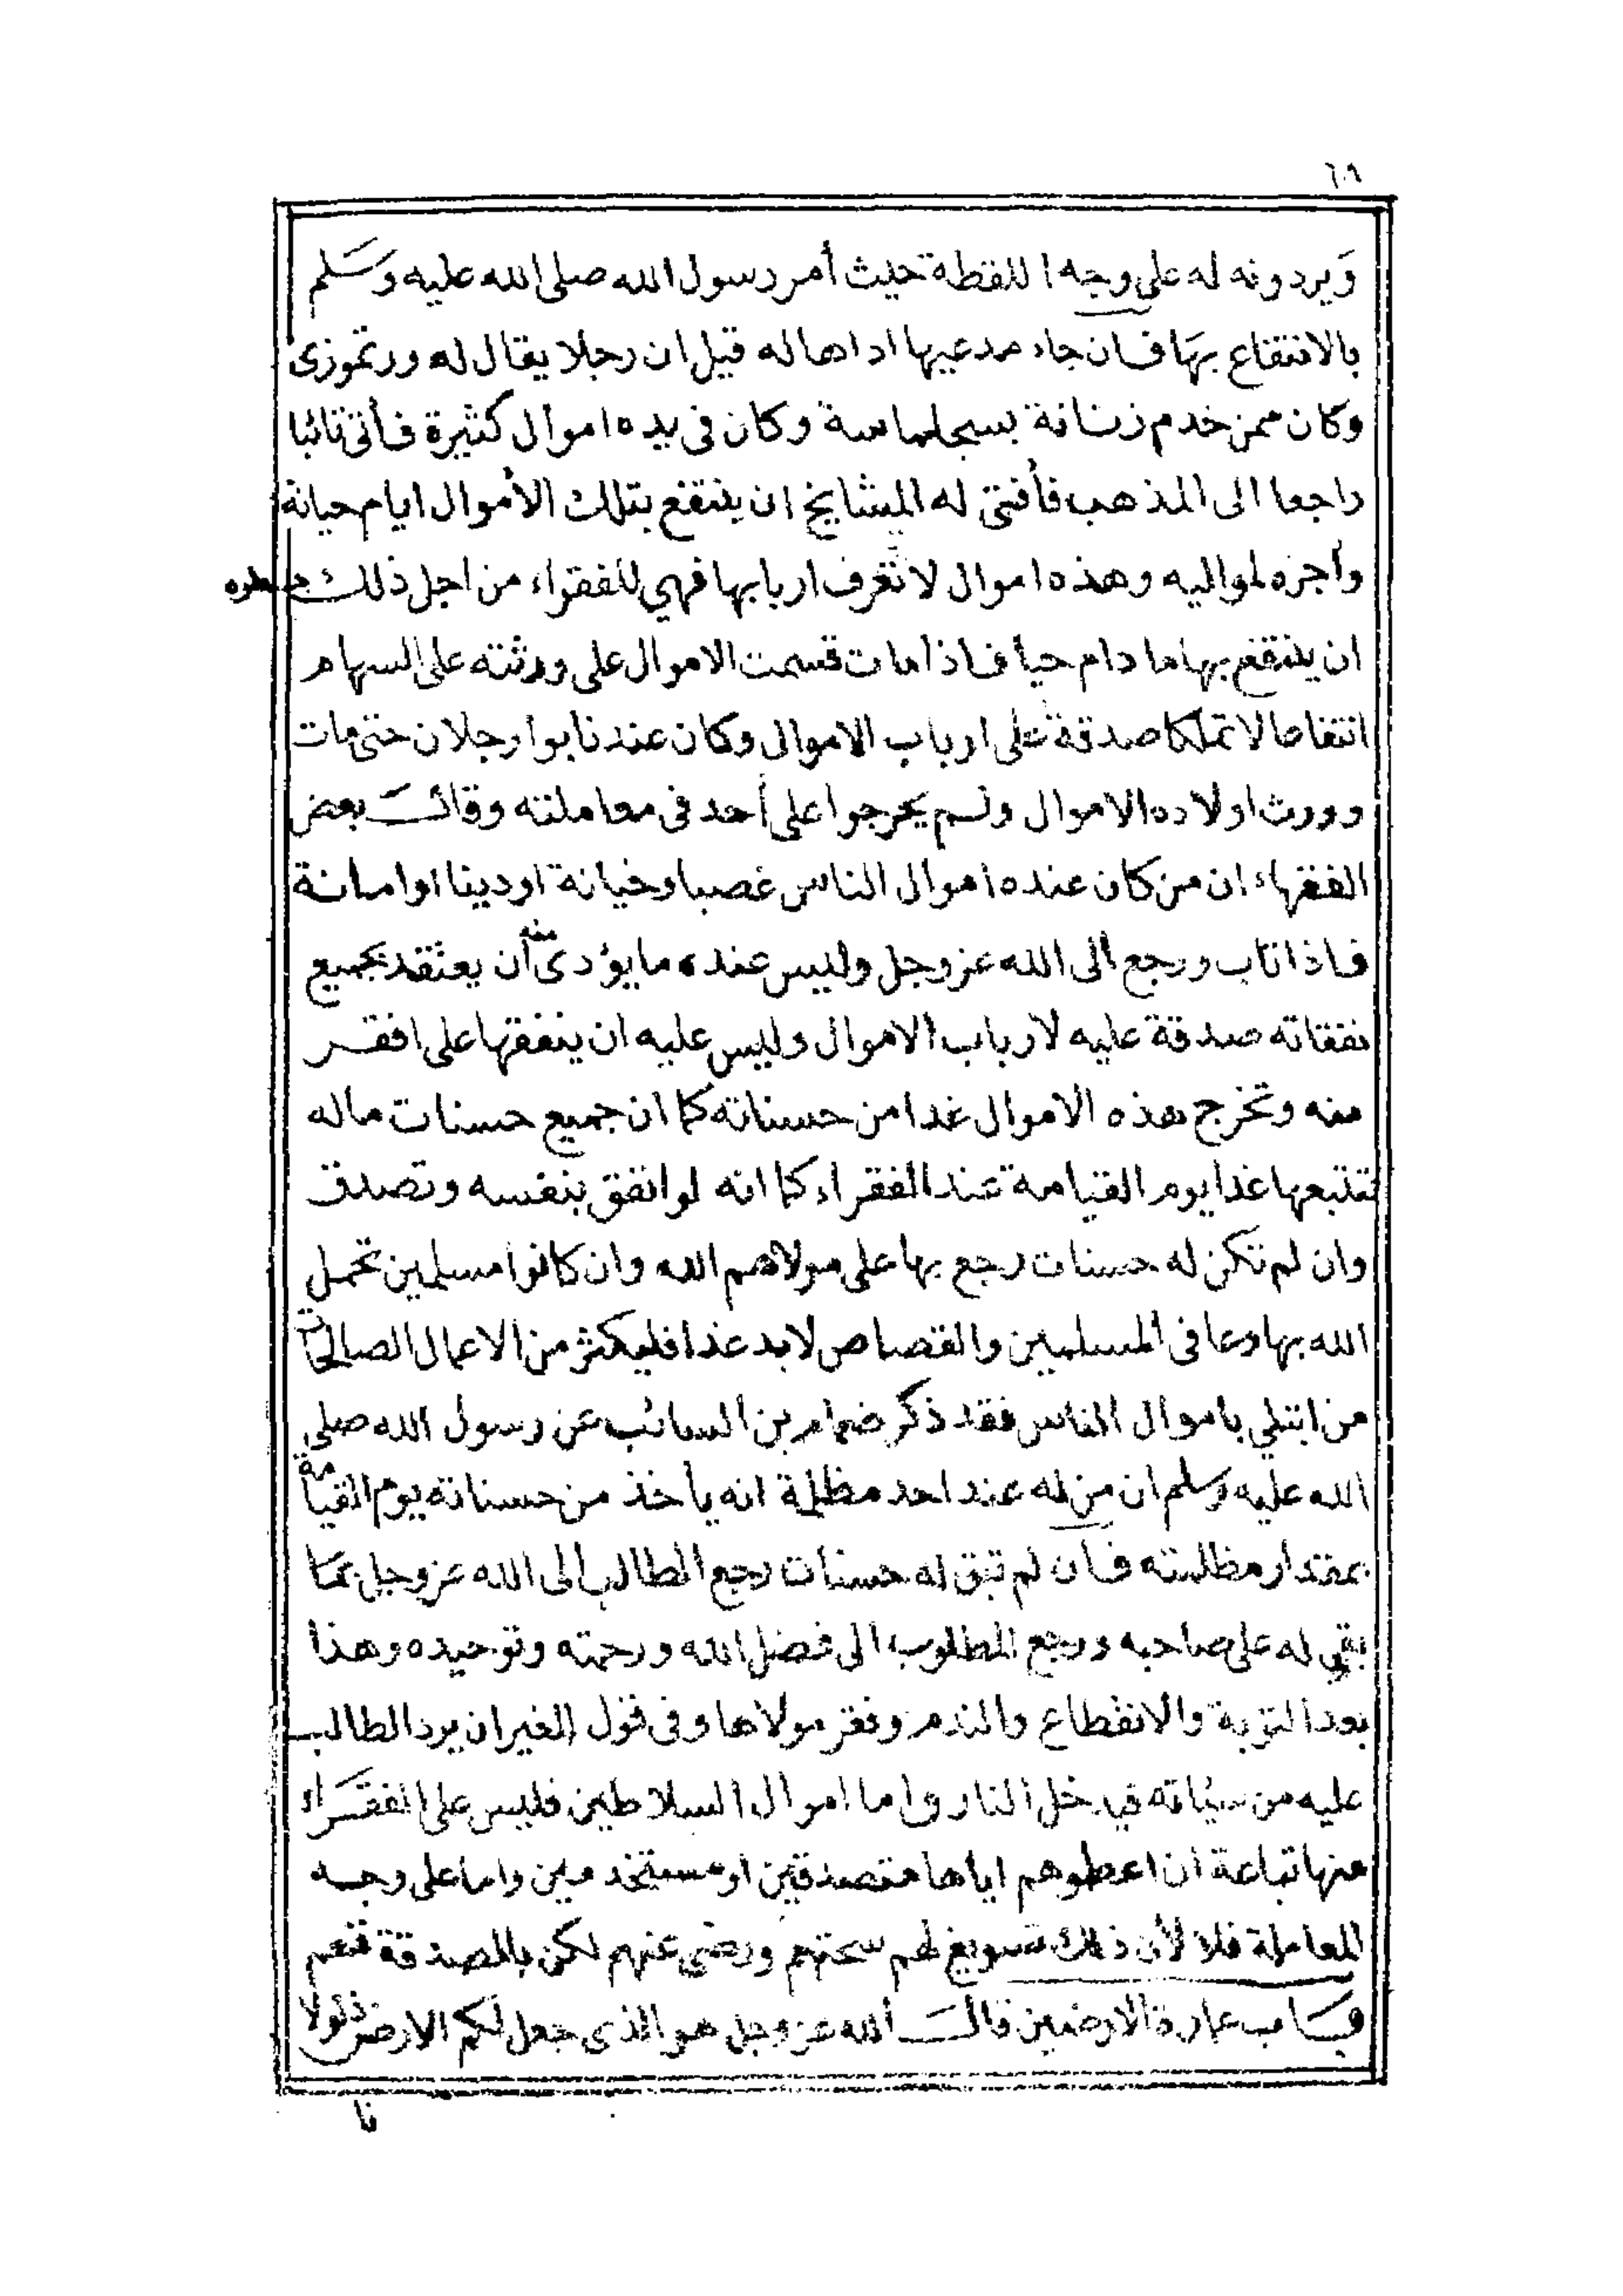 ٦٨
وَيردونه له على وجه اللقطة حيث أمر رسول الله صلى الله عليه وَسَلم
بالانتفاع بهَا فان جاء مدعيها اداها له قيل ان رجلا يقال له ورتموزى
وكان ممن خدم زناتة بسجلماسة وكان فى يده اموال كثيرة فأتى تائبا
راجعا الى المذهب فأفتى له المشايخ ان ينتفع بتلك الأموال ايام حياته
وأجره لمواليه وهذه اموال لا تعرف اربابها فهي للفقراء من اجل ذلك
ان ينتفع بها ما دام حيا فاذا مات قسمت الاموال على ورثته على السهام
انتفاعا لا تملكا صدقة على ارباب الاموال وكان عندنا بوا رجلان حتى مات
وورث اولاده الاموال ولم يحرجوا على أحد فى معاملته وقالَ بعض
الفقهاء ان من كان عنده اموال الناس غصبا وخيانة اودينا اوامانة
فاذا تاب ورجع الى الله عز وجل وليس عنده ما يؤدى منه أن يعتقد بجميع
نفقاته صدقة عليه لارباب الاموال وليس عليه ان ينفقها على افقر
منه وتخرج هذه الاموال غدا من حسناته كما ان جميع حسنات ماله
تتبعها غدا يوم القيامة عند الفقراء كما انه لو انفق بنفسه وتصدق
وان لم تكن له حسنات رجع بها على مولاهم الله وان كانوا مسلمين تحمل
الله بها وعافى المسلمين والقصاص لابد غدا فليكثر من الاعمال الصالحات
من ابتلي باموال الناس فقد ذكر ضمام بن السائب عن رسول الله صلى
الله عليه وَسلم ان من له عند احد مظلمة انه يأخذ من حسناته يوم القيامة
بمقدار مظلمته فان لم تبق له حسنات رجع الطالب الى الله عز وجل بمَا
بقي له على صاحبه ورجع المطلوب الى فضل الله ورحمته وتوحيده وهذا
بعد التوبة والانقطاع والندم وفقر مولاها وفى قول الغير ان يرد الطالب
عليه من سيئاته فيدخل النار واما اموال السلاطين فليس على الفقَراء
منها تباعة ان اعطوهم اياها متصدقين او مستخدمين واما على وجه
المعاملة فلا لأن ذلك تسويغ لهم سحتهم ورضى عنهم لكن بالصدقة فنعم
بَاب عمارة الارضين قالَ الله عز وجل هو الذى جعل لكم الارض ذلولا